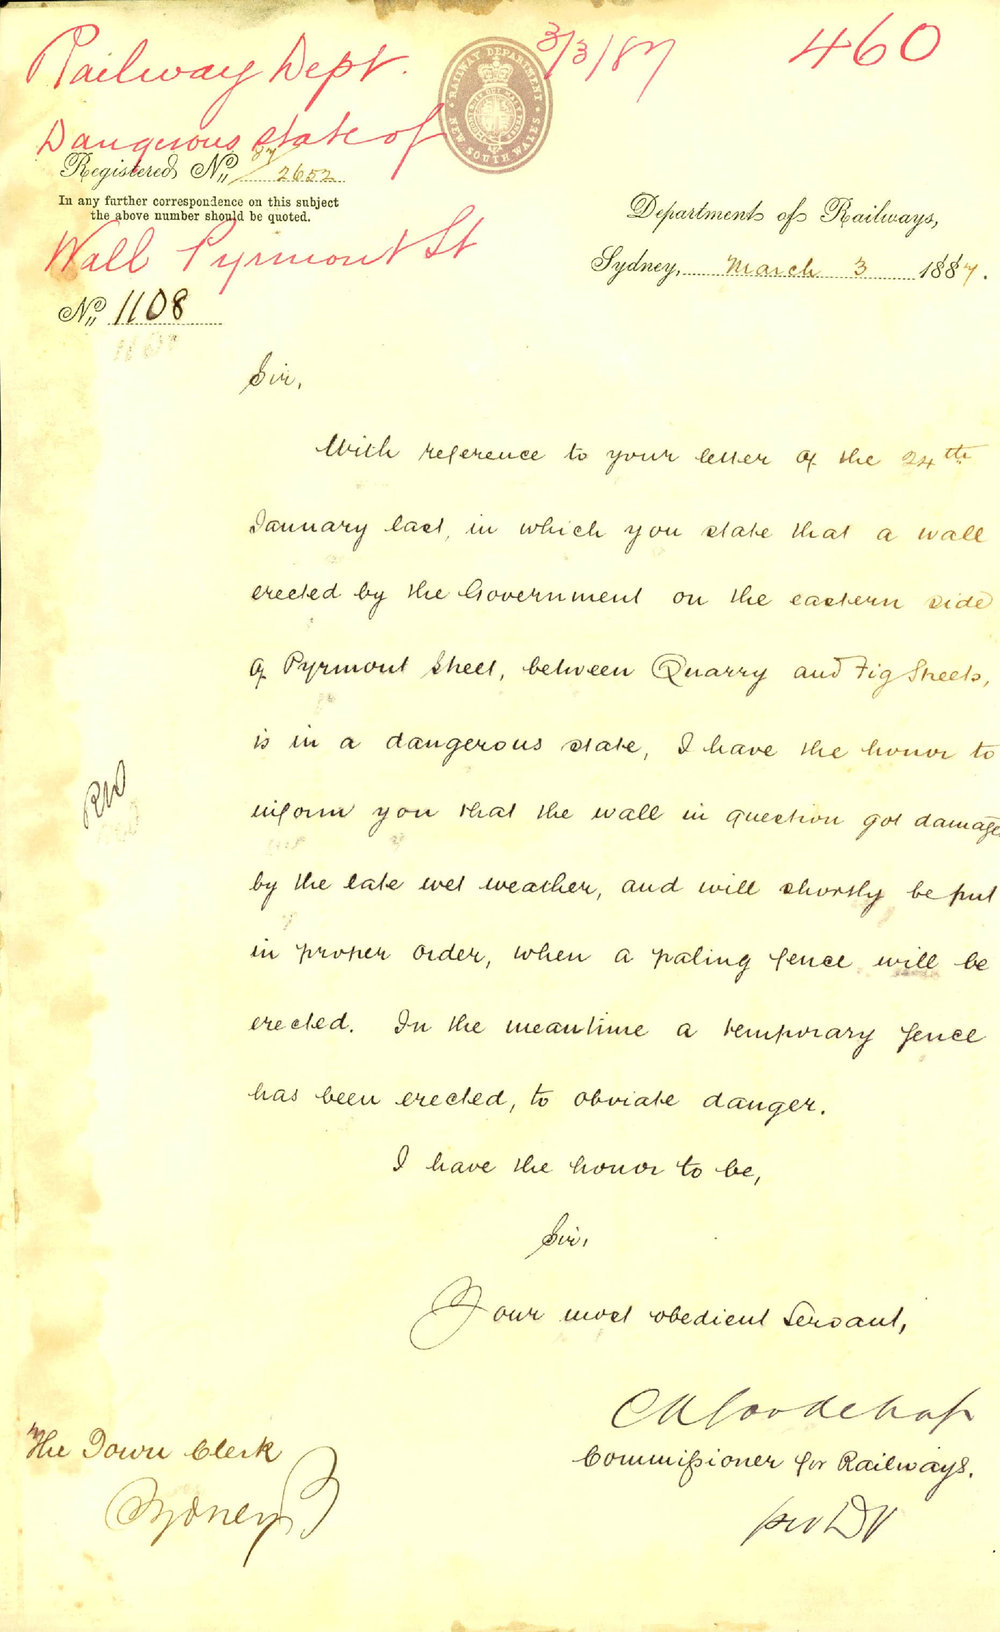 Railway Dept.
3/3/87
460
Dangerous state of
RAILWAY DEPARTMENT
NEW SOUTH WALES
Registered No. 87/2652
In any further correspondence on this subject
the above number should be quoted.
Wall Pyrmont St
Department of Railways,
Sydney, March 3 1887.
No. 1108
Sir,
With reference to your letter of the 24th
January last, in which you state that a wall
erected by the Government on the eastern side
of Pyrmont Street, between Quarry and Fig Streets,
is in a dangerous state, I have the honor to
inform you that the wall in question got damage
by the late wet weather, and will shortly be put
in proper order, when a paling fence will be
erected. In the meantime a temporary fence
has been erected, to obviate danger.
I have the honor to be,
Sir,
Your most obedient Servant,
Ch A Goodchap
Commissioner for Railways.
The Town Clerk
Sydney